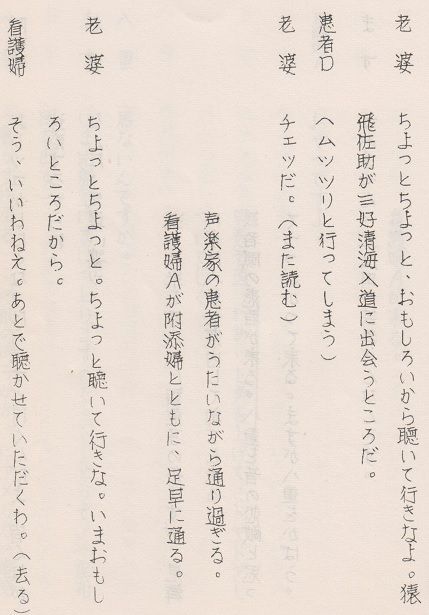 老婆　ちょっとちょっと、おもしろいから聴いて行きなよ。猿
飛佐助が三好清海入道に出会うところだ。
患者D　（ムッツリと行ってしまう）
老婆　チェッだ。（また読む）
声楽家の患者がうたいながら通り過ぎる。
看護婦Aが附添婦とともに、足早に通る。
老婆　ちょっとちょっと。ちょっと聴いて行きな。いまおもし
ろいところだから。
看護婦　そう、いいわねえ。あとで聴かせていただくわ。（去る）